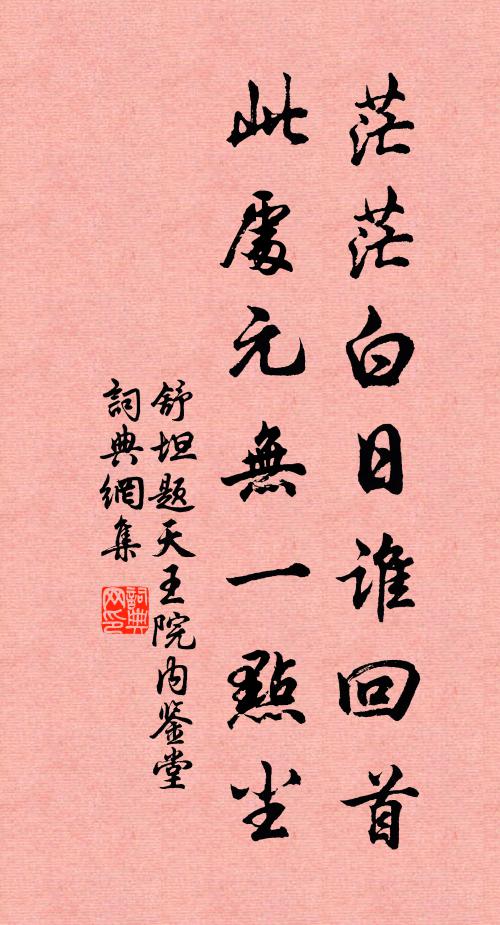 茫茫白日誰回首
此處元無一點尘
舒坦題天王院内鉴堂
詞典網集
詞典网印